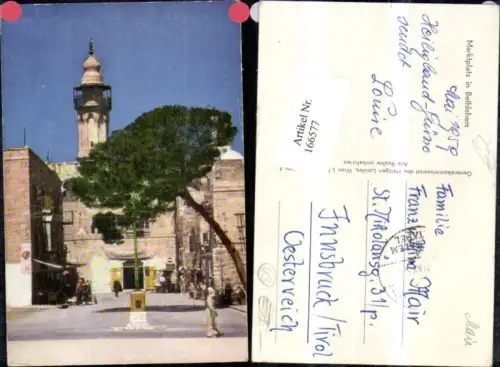 Marktplatz in Bethlehem
Mai 1959
Heiligland-Grüße
sendet
Louise
Artikel Nr.
166577
Generalkommissariat des Heiligen Landes, Wien I.
Alle Rechte vorbehalten
Familie
Franz Mair
St. Nikolausg. 31/p.
Innsbruck/Tirol
Oesterreich